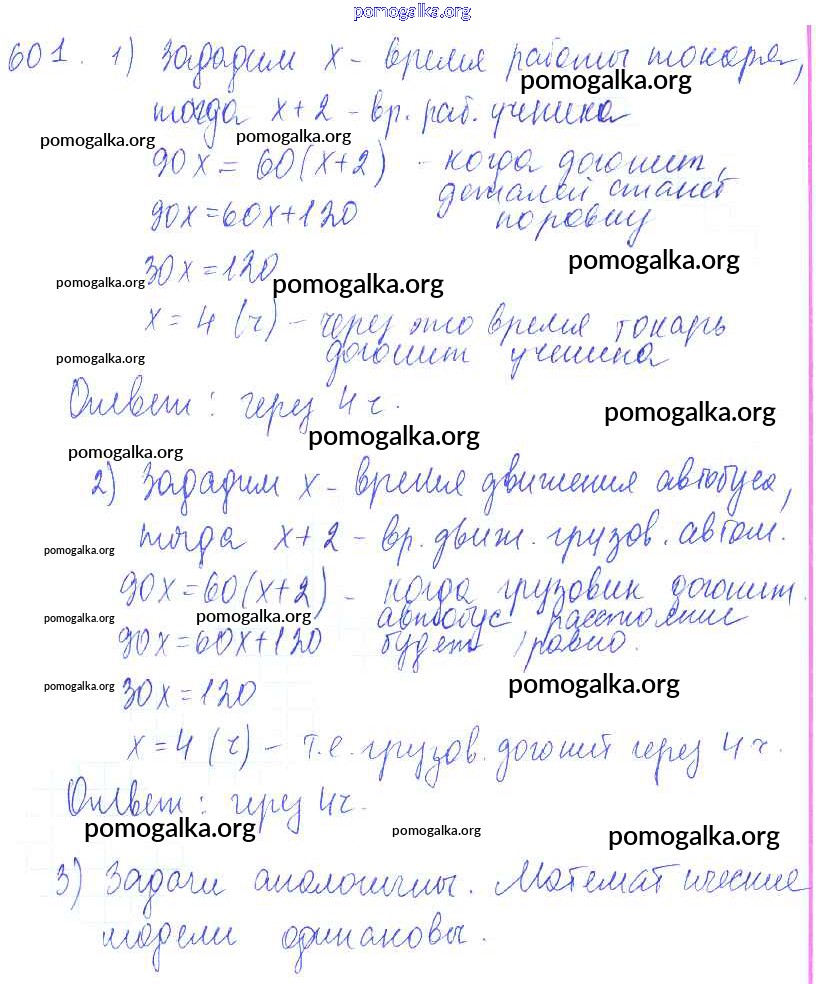 pomogalka.org
601. 1) Зададим x - время работы токаря,
pomogalka.org
тогда x+2 - вр. раб. ученика
pomogalka.org pomogalka.org
90x = 60(x+2) - когда догонит,
деталей станет
90x=60x+120 поровну
pomogalka.org
30x=120
pomogalka.org pomogalka.org
x = 4 (ч) - через это время токарь
pomogalka.org догонит ученика
Ответ: через 4 ч.
pomogalka.org
pomogalka.org pomogalka.org
2) Зададим x - время движения автобуса,
тогда x+2 - вр. движ. грузов. автом.
pomogalka.org
90x=60(x+2) - когда грузовик догонит
pomogalka.org pomogalka.org автобус расстояние
90x=60x+120 будет равно.
pomogalka.org 30x=120 pomogalka.org
x=4 (ч) - т.е. грузов. догонит через 4 ч.
Ответ: через 4ч.
pomogalka.org pomogalka.org pomogalka.org
3) Задачи аналогичны. Математические
модели одинаковы.